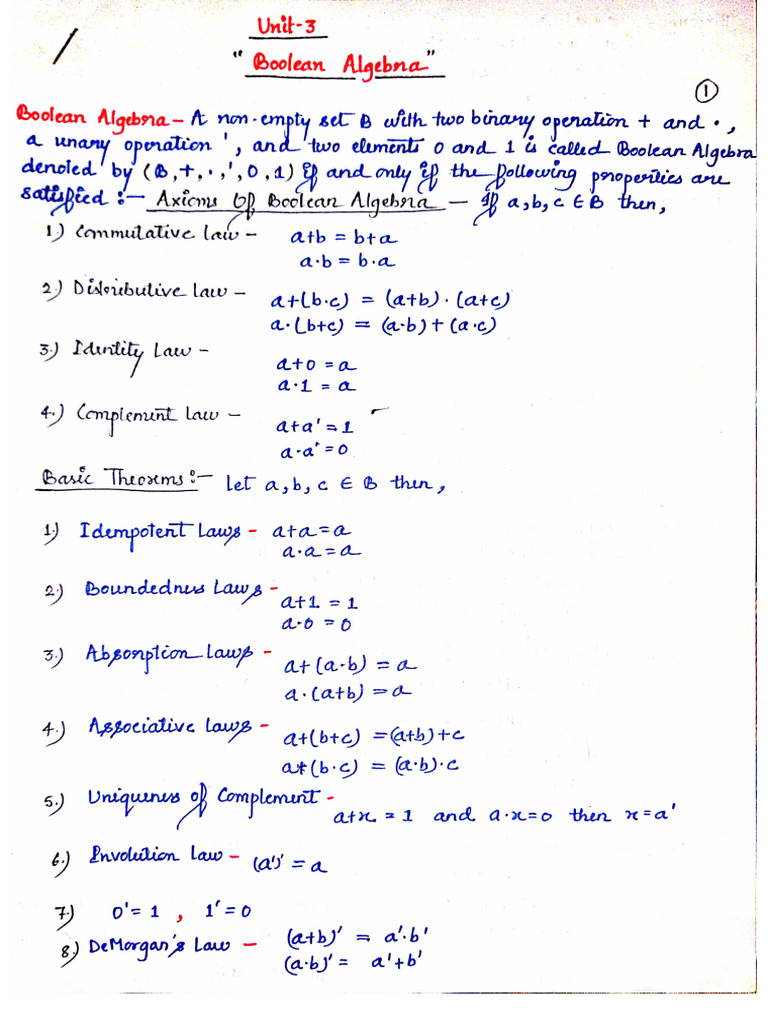 Unit-3
"Boolean Algebra"
1
Boolean Algebra - A non-empty set B with two binary operation + and ·,
a unary operation ', and two elements 0 and 1 is called Boolean Algebra
denoted by (B,+,·,',0,1) if and only if the following properties are
satisfied :- Axioms Of Boolean Algebra - If a,b,c ∈ B then,
1.) Commutative law - a+b = b+a
a·b = b·a
2.) Distributive law - a+(b·c) = (a+b)·(a+c)
a·(b+c) = (a·b)+(a·c)
3.) Identity Law - a+0 = a
a·1 = a
4.) Complement law - a+a' = 1
a·a' = 0
Basic Theorems :- Let a,b,c ∈ B then,
1.) Idempotent Laws - a+a = a
a·a = a
2.) Boundedness Laws - a+1 = 1
a·0 = 0
3.) Absorption Laws - a+(a·b) = a
a·(a+b) = a
4.) Associative laws - a+(b+c) = (a+b)+c
a*(b·c) = (a·b)·c
5.) Uniqueness of Complement - a+x = 1 and a·x=0 then x=a'
6.) Involution Law - (a')' = a
7.) 0'=1 , 1'=0
8.) DeMorgan's Law - (a+b)' = a'·b'
(a·b)' = a'+b'